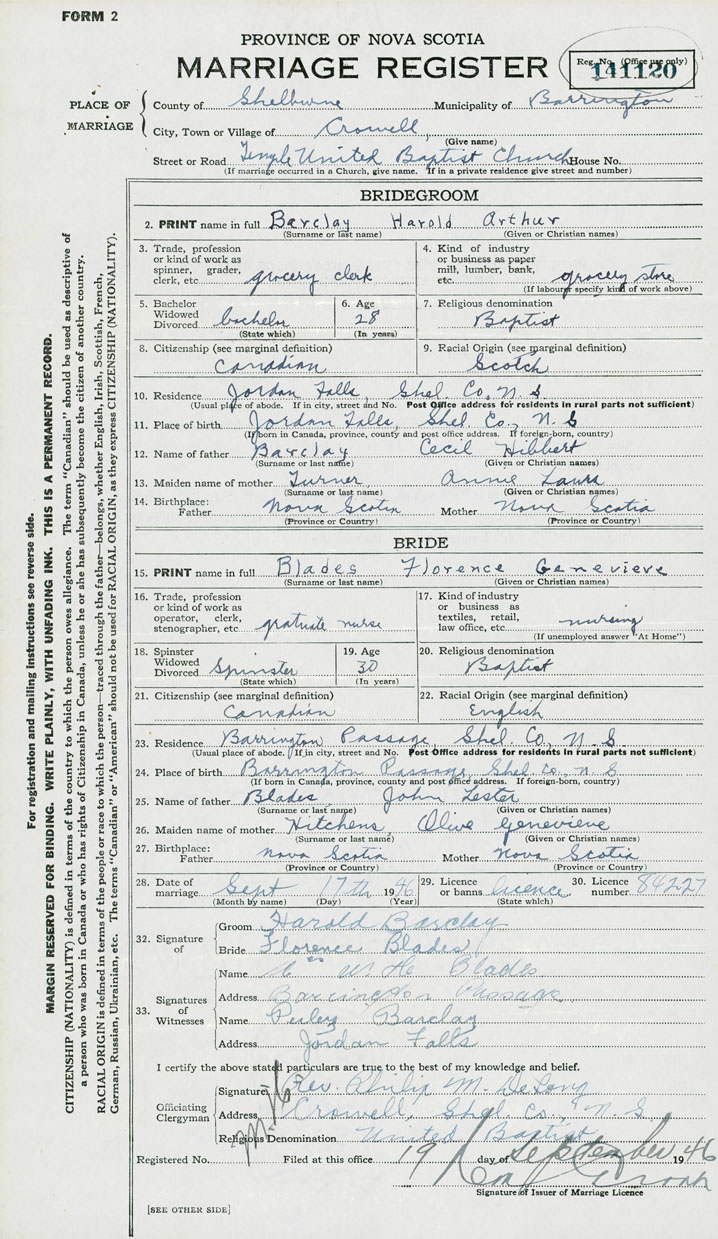 FORM 2
PROVINCE OF NOVA SCOTIA
MARRIAGE REGISTER
Reg. No. (Office use only)
141120
PLACE OF MARRIAGE
County of Shelburne Municipality of Barrington
City, Town or Village of Crowell,
(Give name)
Street or Road Temple United Baptist Church House No.
(If marriage occurred in a Church, give name. If in a private residence give street and number)
BRIDEGROOM
2. PRINT name in full Barclay Harold Arthur
(Surname or last name) (Given or Christian names)
3. Trade, profession or kind of work as spinner, grader, clerk, etc. grocery clerk
4. Kind of industry or business as paper mill, lumber, bank, etc. grocery store
(If labourer specify kind of work above)
5. Bachelor Widowed Divorced bachelor
(State which)
6. Age 28
(In years)
7. Religious denomination
Baptist
8. Citizenship (see marginal definition)
Canadian
9. Racial Origin (see marginal definition)
Scotch
10. Residence Jordan Falls, Shel. Co. N. S
(Usual place of abode. If in city, street and No. Post Office address for residents in rural parts not sufficient)
11. Place of birth Jordan Falls, Shel. Co., N. S
(If born in Canada, province, county and post office address. If foreign-born, country)
12. Name of father Barclay Cecil Hibbert
(Surname or last name) (Given or Christian names)
13. Maiden name of mother Turner, Annie Laura
(Surname or last name) (Given or Christian names)
14. Birthplace: Father Nova Scotia Mother Nova Scotia
(Province or Country) (Province or Country)
BRIDE
15. PRINT name in full Blades Florence Genevieve
(Surname or last name) (Given or Christian names)
16. Trade, profession or kind of work as operator, clerk, stenographer, etc. gratuate nurse
17. Kind of industry or business as textiles, retail, law office, etc. nursing
(If unemployed answer "At Home")
18. Spinster Widowed Divorced Spinster
(State which)
19. Age 30
(In years)
20. Religious denomination
Baptist
21. Citizenship (see marginal definition)
Canadian
22. Racial Origin (see marginal definition)
English
23. Residence Barrington Passage Shel. Co, N. S.
(Usual place of abode. If in city, street and No. Post Office address for residents in rural parts not sufficient)
24. Place of birth Barrington Passage, Shel. Co., N. S
(If born in Canada, province, county and post office address. If foreign-born, country)
25. Name of father Blades, John Lester
(Surname or last name) (Given or Christian names)
26. Maiden name of mother Hitchens, Olive Genevieve
(Surname or last name) (Given or Christian names)
27. Birthplace: Father Nova Scotia Mother Nova Scotia
(Province or Country) (Province or Country)
28. Date of marriage Sept 17th 1946
(Month by name) (Day) (Year)
29. Licence or banns licence
(State which)
30. Licence number 84227
32. Signature of
Groom Harold Barclay
Bride Florence Blades
33. Signatures of Witnesses
Name Blades
Address Barrington Passage
Name Barclay
Address Jordan Falls
I certify the above stated particulars are true to the best of my knowledge and belief.
Officiating Clergyman
Signature Rev. Philip M. DeLong
Address Crowell, Shel. Co., N S
Religious Denomination United Baptist
Registered No. Filed at this office 19 day of September 1946
Signature of Issuer of Marriage Licence
[SEE OTHER SIDE]
For registration and mailing instructions see reverse side.
MARGIN RESERVED FOR BINDING. WRITE PLAINLY, WITH UNFADING INK. THIS IS A PERMANENT RECORD.
CITIZENSHIP (NATIONALITY) is defined in terms of the country to which the person owes allegiance. The term "Canadian" should be used as descriptive of
a person who was born in Canada or who has rights of Citizenship in Canada, unless he or she has subsequently become the citizen of another country.
RACIAL ORIGIN is defined in terms of the people or race to which the person—traced through the father—belongs, whether English, Irish, Scottish, French,
German, Russian, Ukrainian, etc. The terms "Canadian" or "American" should not be used for RACIAL ORIGIN, as they express CITIZENSHIP (NATIONALITY).